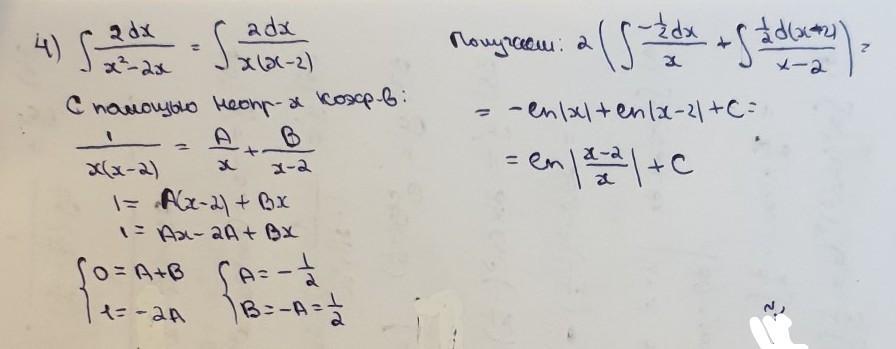 4) ∫ 2dx/(x²-2x) = ∫ 2dx/(x(x-2))
С помощью неопр-х коэф-в:
1/(x(x-2)) = A/x + B/(x-2)
1 = A(x-2) + Bx
1 = Ax - 2A + Bx
{ 0 = A+B { A = -1/2
{ 1 = -2A { B = -A = 1/2
Получаем: 2(∫ -1/2 dx/x + ∫ 1/2 d(x-2)/(x-2)) =
= -ln|x| + ln|x-2| + C =
= ln|(x-2)/x| + C